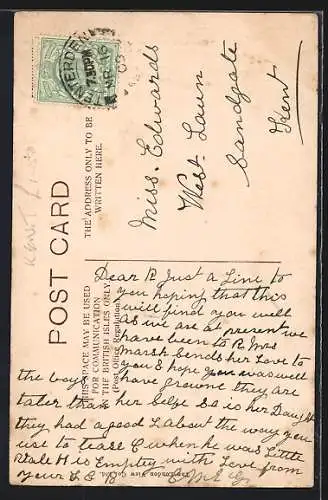 TENTERDEN
7.30 PM
AP 16
03
POST CARD
THE ADDRESS ONLY TO BE
WRITTEN HERE.
THIS SPACE MAY BE USED
FOR COMMUNICATION
THE BRITISH ISLES ONLY.
(Post Office Regulation).
KENT £1.50
Miss. Edwards
West Lawn
Sandgate
Kent
Dear B Just a Line to
you hoping that this
will find you well
as we are at present we
have been to R Mrs
Marsh sends her Love to
you & hope you was well
the boys have growne they are
taler than her selfe So is her Daughter
they had a good L about the way you
use to tease C when he was Little
tale H is Emptey with Love from
your